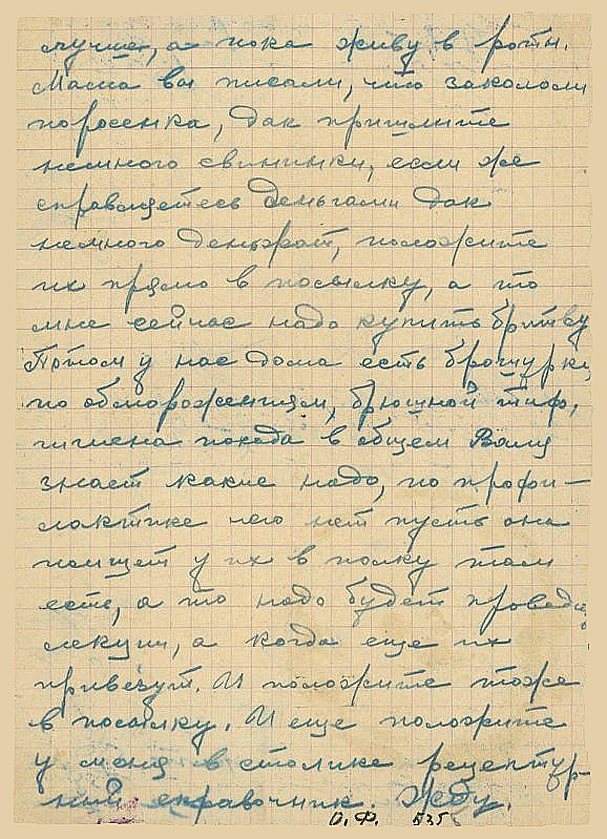 лучше, а пока живу в ротн.
Мама вы писали, что закололи
поросенка, дак пришлите
немного свининки, если же
справляетесь деньгами дак
немного деньжат, положите
их прямо в посылку, а то
мне сейчас надо купить бритву
Потом у нас дома есть брошурки
по обморожениям, брюшной тиф,
гигиена похода в общем Валя
знает какие надо, по профи-
лактике чего нет пусть она
поищет у их в полку там
есть, а то надо будет проводи
лекции, а когда еще их
привезут. И положите тоже
в посылку. И еще положите
у меня в столике рецептур-
ный справочник. Жду.
О.Ф. 535